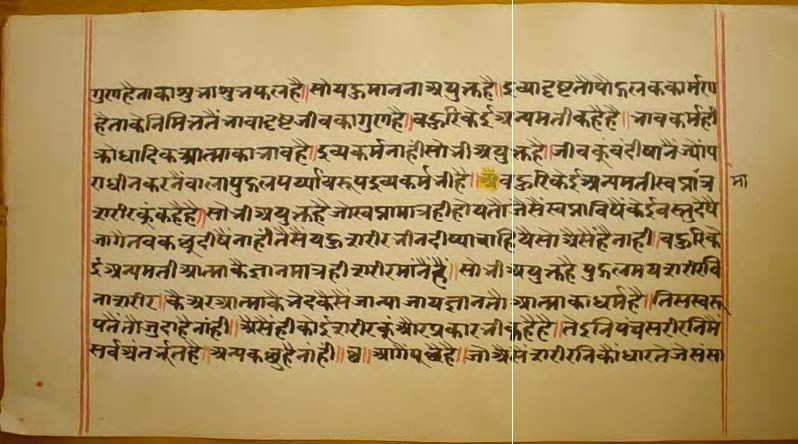 गुण है ना का शुभाशुभ फल है॥ सो यह मानना अयुक्त है॥ द्रव्यादृष्ट तौ पौद्गलक कार्मण
है ता के निमित्त तैं भावादृष्ट जीव का गुण है॥ बहुरि केई अन्यमती कहै है॥ भावकर्म ही
क्रोधादिक आत्मा का भाव है॥ द्रव्यकर्म नाही सो भी अयुक्त है॥ जीव कू वदीषानै ज्यों प
राधीन करनैं वाला पुद्गल पर्याय रूप द्रव्यकर्म भी है॥ बहुरि केई अन्यमती स्वप्नांत्र
मा
शरीर कूं कहै है॥ सो भी अयुक्त है जो स्वप्ना मात्र ही होय तौ जैसैं स्वप्ना विषैं केई वस्तु देषै
जागै तब कछु दीषैं नाही तैसैं यह शरीर भी न दीष्या चाहिये सो अैसैं है नाही॥ बहुरि के
ई अन्यमती आत्मा कै ज्ञान मात्र ही शरीर मांनैं हैं॥ सो भी अयुक्त है पुद्गलमय शरीर वि
ना शरीर॥ कै अर आत्मा कै भेद कैसैं जान्या जाय ज्ञान तौ आत्मा का धर्म है॥ तिस स्वरू
प तैं तौ जुदा है नांही॥ अैसैं ही कोई शरीर कूं और प्रकार भी कहै है॥ ते इनि पंच सरीरनि मैं
सर्व अंतर्भूत है॥ अन्य कछु है नांही॥ छ॥ आगैं पूछै है॥ जो अैसैं शरीरनि कौं धारते जे संसा